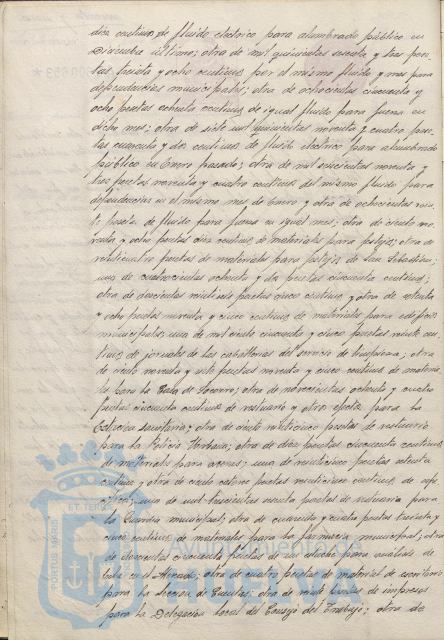 diez centimos de fluido electrico para alumbrado público en
Diciembre último; otra de mil quinientas sesenta y tres pese-
tas treinta y ocho centimos por el mismo fluido y mes para
dependencias municipales; otra de ochocientas cincuenta y
ocho pesetas ochenta centimos de igual fluido para fuerza en
dicho mes; otra de siete mil quinientas noventa y cuatro pese-
tas cuarenta y dos centimos de fluido electrico para alumbrado
público en Enero pasado; otra de mil seiscientas noventa y
tres pesetas noventa y cuatro centimos del mismo fluido para
dependencias en el mismo mes de Enero y otra de ochocientas
pesetas de fluido para fuerza en igual mes; otra de ciento no-
venta y ocho pesetas diez centimos de materiales para festejos; otra de
veinticuatro pesetas de materiales para festejos de San Sebastian;
una de cuatrocientas ochenta y dos pesetas cincuenta centimos;
otra de doscientas veintiseis pesetas cinco centimos y otra de setenta
y ocho pesetas noventa y cinco centimos de materiales para edificios
municipales; una de mil ciento cincuenta y cinco pesetas veinte cen-
timos de jornales de las caballerias del servicio de limpieza; otra
de ciento noventa y siete pesetas noventa y cinco centimos de materia-
les para la Casa de Socorro; otra de novecientas ochenta y cuatro
pesetas cincuenta centimos de vestuario y otros efectos para la
Sanitaria; otra de ciento veinticinco pesetas de vestuario
para la Policia Urbana; otra de diez pesetas cincuenta centimos
de materiales para aceras; una de veinticinco pesetas setenta
centimos; otra de ciento catorce pesetas veinticinco centimos de
una de mil trescientas pesetas de vestuario para
la Guardia municipal; otra de cuarenta y cuatro pesetas treinta y
cinco centimos de materiales para la farmacia municipal; otra
de doscientas cincuenta pesetas de un para analisis de
leche en el Mercado; otra de cuatro pesetas de material de escritorio
para la seccion de Cuentas; otra de veinte pesetas de impresos
para la Delegacion local del Consejo del Trabajo; otra de
PORTUS MARIS
ET TERRAE